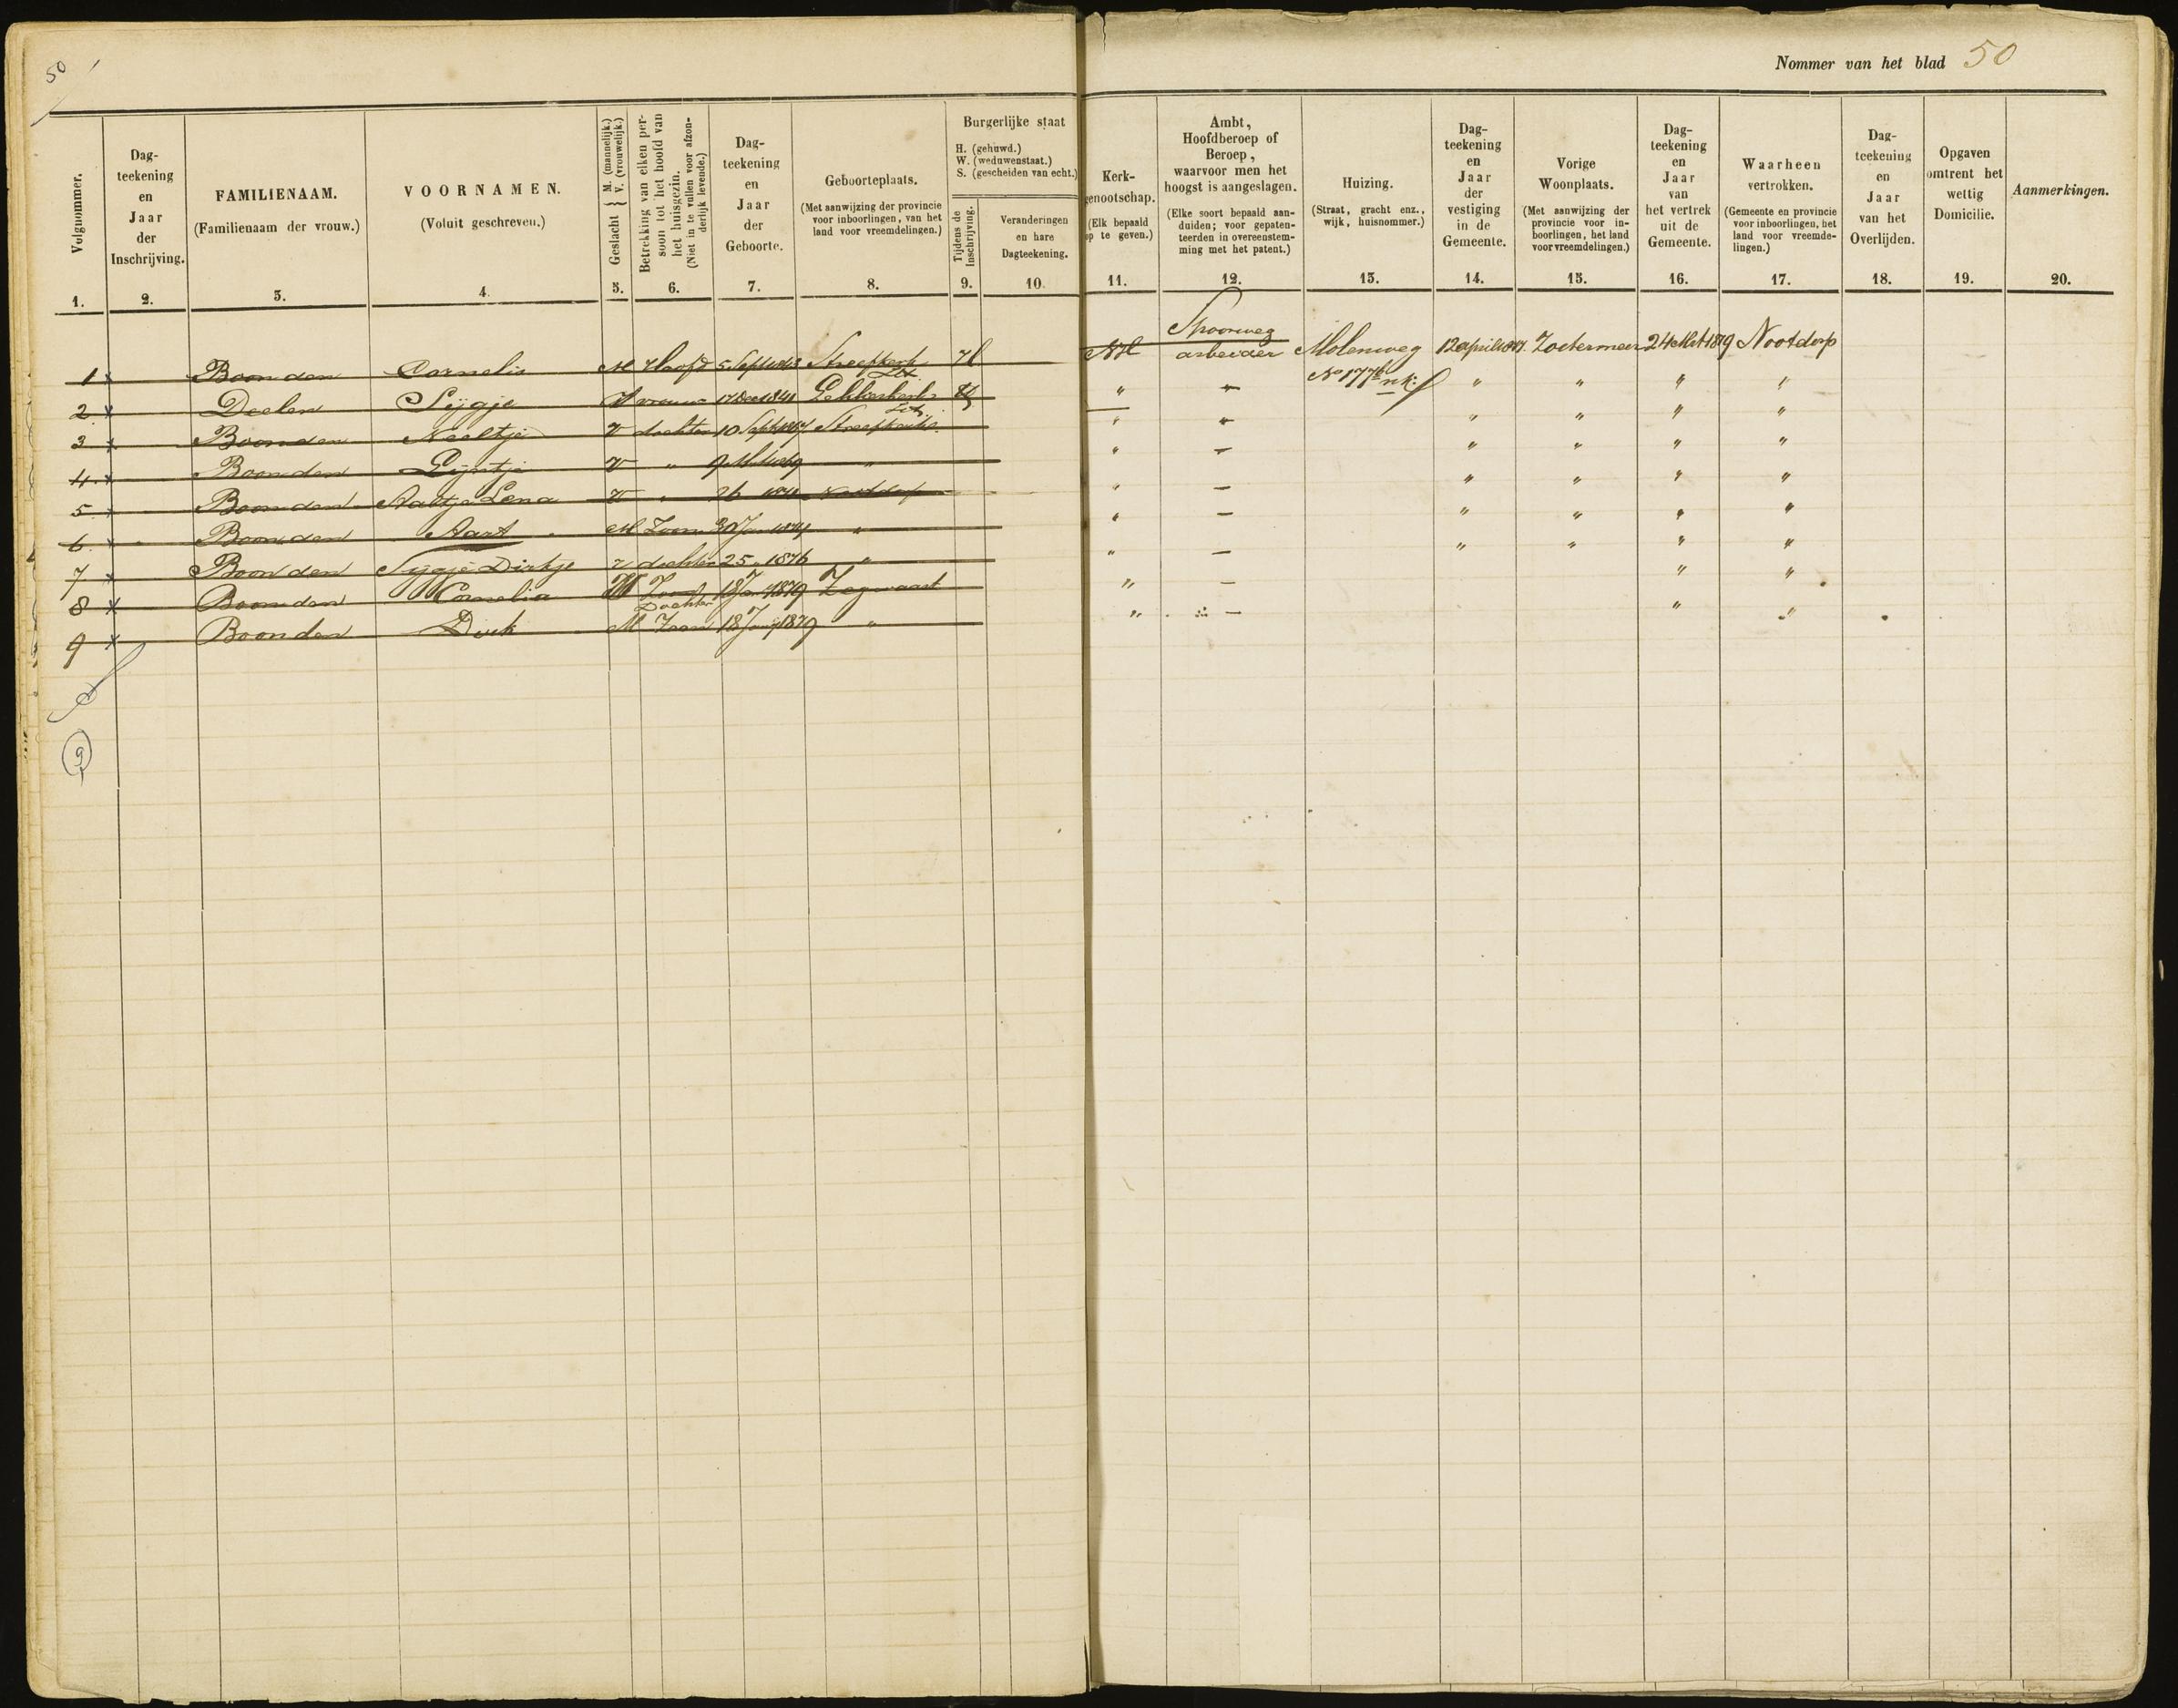 50
Nommer van het blad 50
Volgnommer.
1.
Dag-
teekening
en
Jaar
der
Inschrijving.
2.
FAMILIENAAM.
(Familienaam der vrouw.)
3.
VOORNAMEN.
(Voluit geschreven.)
4.
Geslacht { M. (mannelijk.) V. (vrouwelijk.)
5.
Betrekking van elken per-
soon tot het hoofd van
het huisgezin.
(Niet in te vullen voor afzon-
derlijk levende.)
6.
Dag-
teekening
en
Jaar
der
Geboorte.
7.
Geboorteplaats.
(Met aanwijzing der provincie
voor inboorlingen, van het
land voor vreemdelingen.)
8.
Burgerlijke staat
H. (gehuwd.)
W. (weduwenstaat.)
S. (gescheiden van echt.)
Tijdens de
Inschrijving.
9.
Veranderingen
en hare
Dagteekening.
10.
Kerk-
genootschap.
(Elk bepaald
op te geven.)
11.
Ambt,
Hoofdberoep of
Beroep,
waarvoor men het
hoogst is aangeslagen.
(Elke soort bepaald aan-
duiden; voor gepaten-
teerden in overeenstem-
ming met het patent.)
12.
Huizing.
(Straat, gracht enz.,
wijk, huisnommer.)
13.
Dag-
teekening
en
Jaar
der
vestiging
in de
Gemeente.
14.
Vorige
Woonplaats.
(Met aanwijzing der
provincie voor in-
boorlingen, het land
voor vreemdelingen.)
15.
Dag-
teekening
en
Jaar
van
het vertrek
uit de
Gemeente.
16.
Waarheen
vertrokken.
(Gemeente en provincie
voor inboorlingen, het
land voor vreemde-
lingen.)
17.
Dag-
teekening
en
Jaar
van het
Overlijden.
18.
Opgaven
omtrent het
wettig
Domicilie.
19.
Aanmerkingen.
20.
1 x Boon den Cornelis M Hoofd 5 Sept 1843 Streefkerk H NH Spoorweg
arbeider Molenweg 12 april 1877 Zoetermeer 24 Mrt 1879 Nootdorp
2 x Deelen Sijgje V vrouw 17 Dec 1841 Lekkerkerk H " No 177 " " " "
3 x Boon den Neeltje V dochter 10 Sept 1867 Streefkerk " " " " "
4 x Boon den Lijntje V " 9 Mrt 1869 " " " " " "
5 x Boon den Aaltje Lena V " 26 Nootdorp " " " " "
6 x Boon den Aart M Zoon 30 Jan 1874 " " " " " "
7 x Boon den Sijgje Dirkje V dochter 25 " 1876 " " " " " "
8 x Boon den Cornelia Dochter 18 Jan 1879 Zegwaart " " "
9 x Boon den Dirk M Zoon 18 Jan 1879 " " " "
9